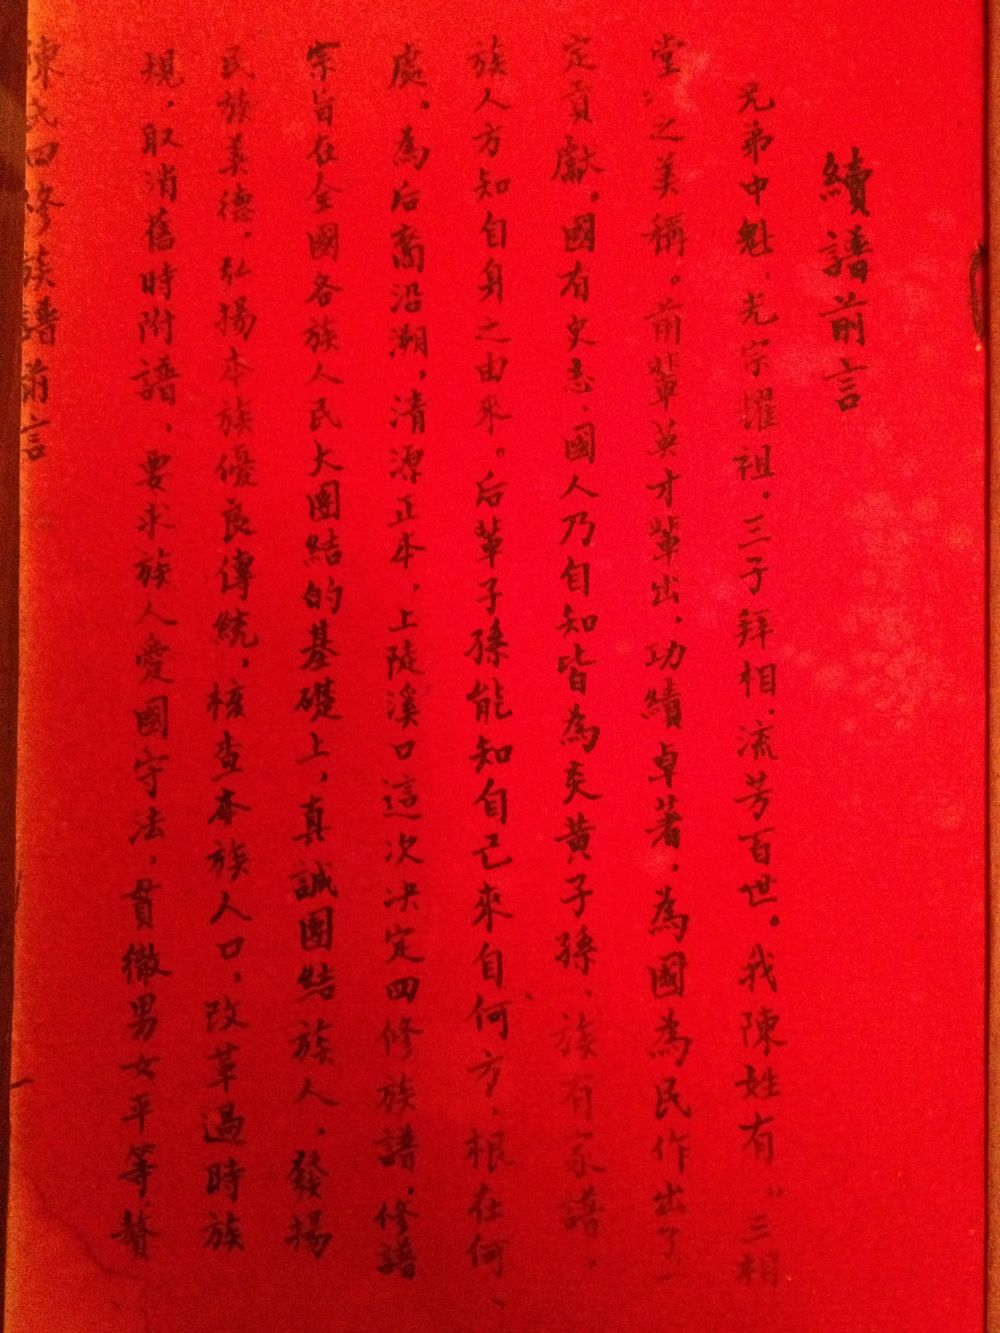 續譜前言
兄弟中魁，光宗耀祖。三子拜相，流芳百世。我陳姓有“三相
堂”之美稱。前輩英才輩出，功績卓著，為國為民作出了一
定貢獻。國有史志，國人乃自知皆為炎黃子孫，族有家譜，
族人方知自身之由來。后輩子孫能知自己來自何方，根在何
處。為后裔沿溯，清源正本，上陡溪口這次决定四修族譜。修譜
宗旨在全國各族人民大團結的基礎上，真誠團結族人，發揚
民族美德，弘揚本族優良傳統，核查本族人口，改革過時族
規，取消舊時附譜，要求族人愛國守法，貫徹男女平等，贅
陳氏四修族譜前言